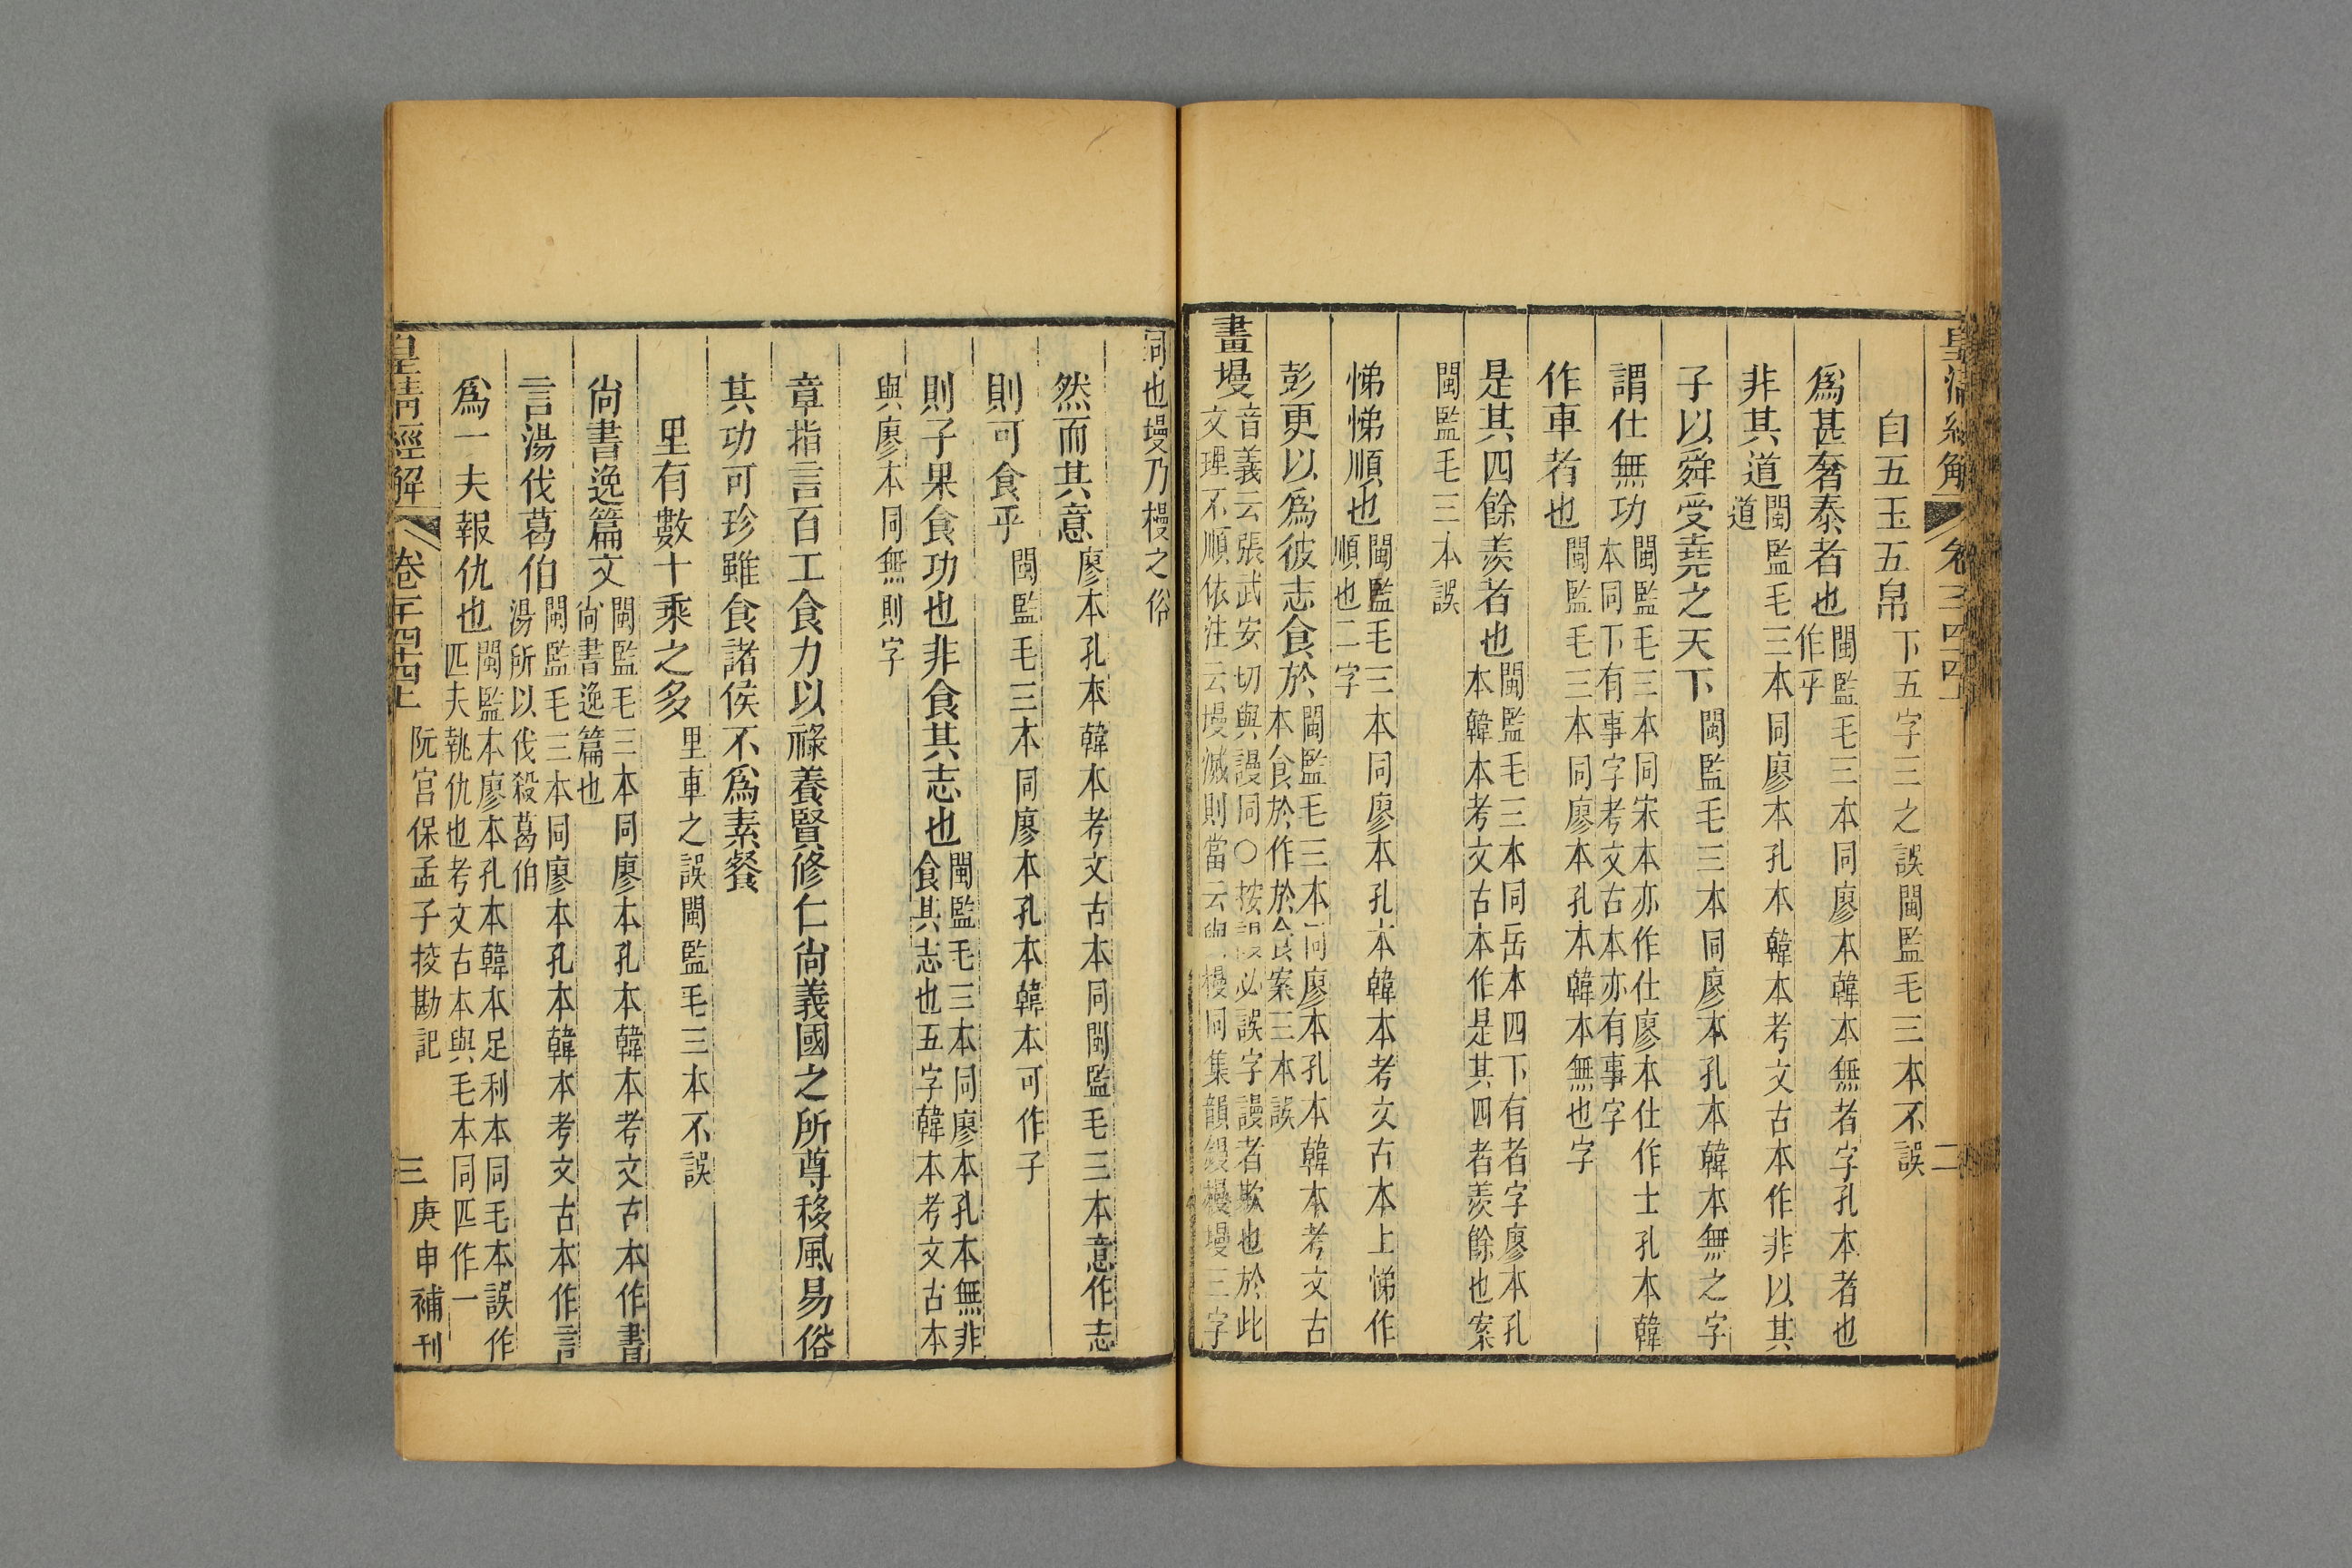 皇清經解 卷
二
自五玉五帛 下五字三之誤閩監毛三本不誤
爲甚奢泰者也 閩監毛三本同廖本韓本無者字孔本者也
作乎
非其道 閩監毛三本同廖本孔本韓本考文古本作非以其
道
子以舜受堯之天下 閩監毛三本同廖本孔本韓本無之字
謂仕無功 閩監毛三本同宋本亦作仕廖本仕作士孔本韓
本同下有事字考文古本亦有事字
作車者也 閩監毛三本同廖本孔本韓本無也字
是其四餘羨者也 閩監毛三本同岳本四下有者字廖本孔
本韓本考文古本作是其四者羨餘也案
閩監毛三本誤
悌悌順也 閩監毛三本同廖本孔本韓本考文古本上悌作
順也二字
彭更以爲彼志食於 閩監毛三本同廖本孔本韓本考文古
本食於作於食案三本誤
畫墁 音義云張武安切與謾同〇按謾必誤字謾者欺也於此
文理不順依注云墁滅則當云與槾同集韻縵槾墁三字
同也墁乃槾之俗
然而其意 廖本孔本韓本考文古本同閩監毛三本意作志
則可食乎 閩監毛三本同廖本孔本韓本可作子
則子果食功也非食其志也 閩監毛三本同廖本孔本無非
食其志也五字韓本考文古本
與廖本同無則字
章指言百工食力以祿養賢修仁尙義國之所尊移風易俗
其功可珍雖食諸侯不爲素餐
里有數十乘之多 里車之誤閩監毛三本不誤
尙書逸篇文 閩監毛三本同廖本孔本韓本考文古本作書
尙書逸篇也
言湯伐葛伯 閩監毛三本同廖本孔本韓本考文古本作言
湯所以伐殺葛伯
爲一夫報仇也 閩監本廖本孔本韓本足利本同毛本誤作
匹夫執仇也考文古本與毛本同匹作一
皇清經解 卷千四十四上 阮宮保孟子挍勘記 三 庚申補刊